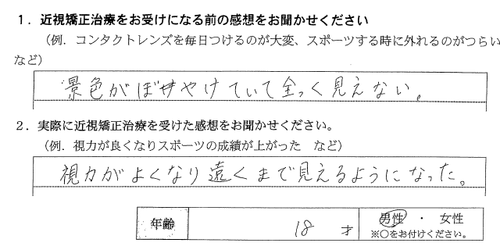 1．近視矯正治療をお受けになる前の感想をお聞かせください
（例．コンタクトレンズを毎日つけるのが大変、スポーツする時に外れるのがつらい
など）
景色がぼやけていて全っく見えない。
2．実際に近視矯正治療を受けた感想をお聞かせください。
（例．視力が良くなりスポーツの成績が上がった　など）
視力がよくなり遠くまで見えるようになった。
年齢　18　才　男性　・　女性
※○をお付けください。